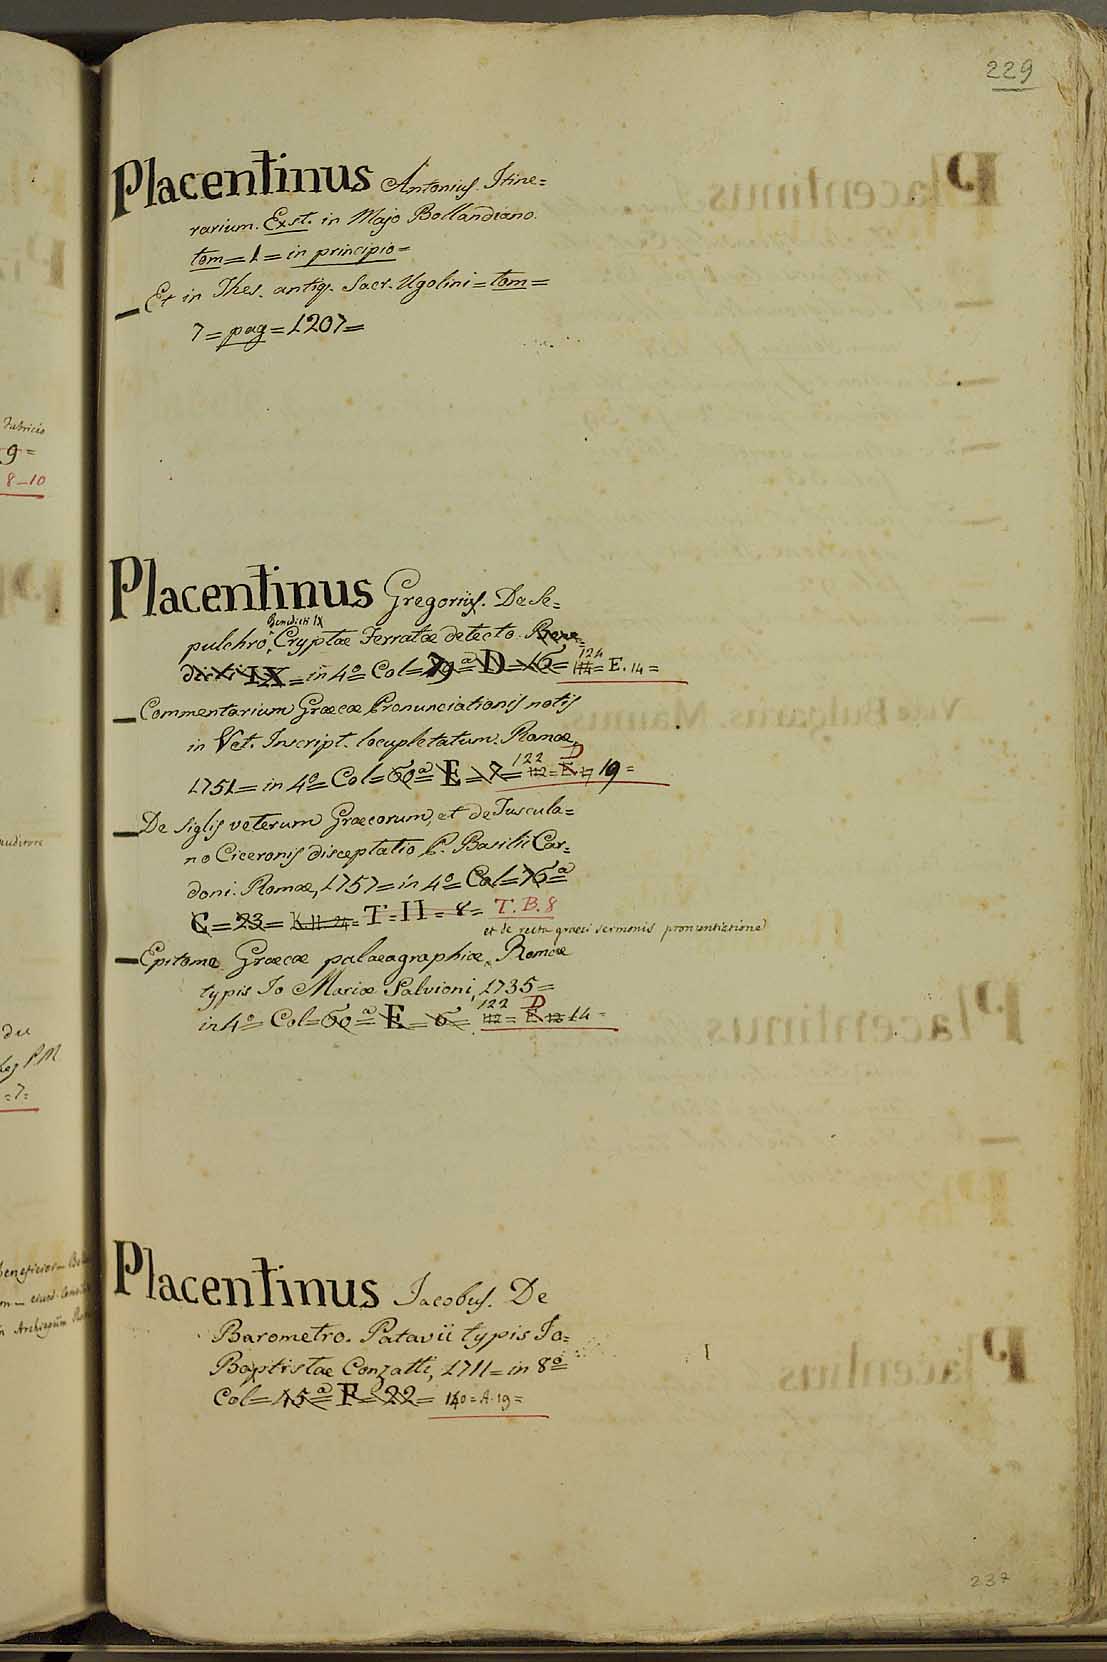 229
Placentinus Antonius. Itine=
rarium. Exst. in Majo Bollandiano.
tom = 1 = in principio =
— Et in Thes. antiq. Sacr. Ugolini = tom =
7 = pag = 1207 =
Placentinus Gregorius. De Se=
Benedicti IX
pulchro Cryptae Ferratae detecto. Bene=
dicti IX = in 4º Col = 79ª D = 16 = 124 = E. 14 =
— Commentarium Graecae Pronunciationis notis
in Vet. Inscript. locupletatum. Romae,
1751 = in 4º = Col = 60ª E = 7 = 122 = D 19 =
— De Siglis veterum Graecorum, et de Tuscula=
no Ciceronis disceptatio P. Basilii Car=
doni. Romae, 1757 = in 4º = Col = 76ª
C = 23 = T = II = 8 = T. B. 8
et de recta graeci sermonis pronuntiatione
— Epitome Graecae palaeographiae. Romae
typis Jo Mariae Salvioni, 1735 =
in 4º = Col = 60ª = E = 6 = 122 = D 14 =
Placentinus Jacobus. De
Barometro. Patavii typis Jo=
Baptistae Conzatti, 1711 = in 8º
Col = 45ª F = 22 = 140 = A. 19 =
237
Fabricio
9 =
8–10
= 7 =